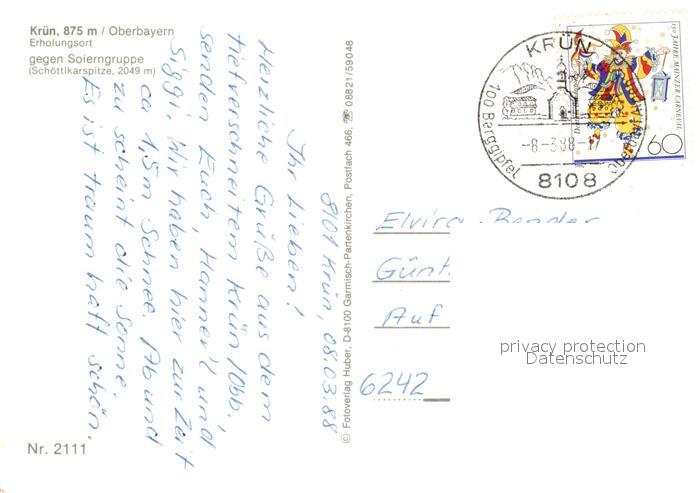 Krün, 875 m / Oberbayern
Erholungsort
gegen Soierngruppe
(Schöttlkarspitze, 2049 m)
8101 Krün, 08.03.88
Ihr Lieben!
Herzliche Grüße aus dem
tiefverschneitem Krün/Obb.,
senden Euch Hannerl und
Siggi. Wir haben hier zur Zeit
ca 1,5m Schnee. Ab und
zu scheint die Sonne.
Es ist traumhaft schön.
Nr. 2111
© Fotoverlag Huber, D-8100 Garmisch-Partenkirchen, Postfach 466, ☏ 08821/59048
KRÜN
100 Berggipfel
-8-3.88-17
8108
150 JAHRE MAINZER CARNEVAL
60
Elvira Bender
Günt
Auf
6242
privacy protection
Datenschutz